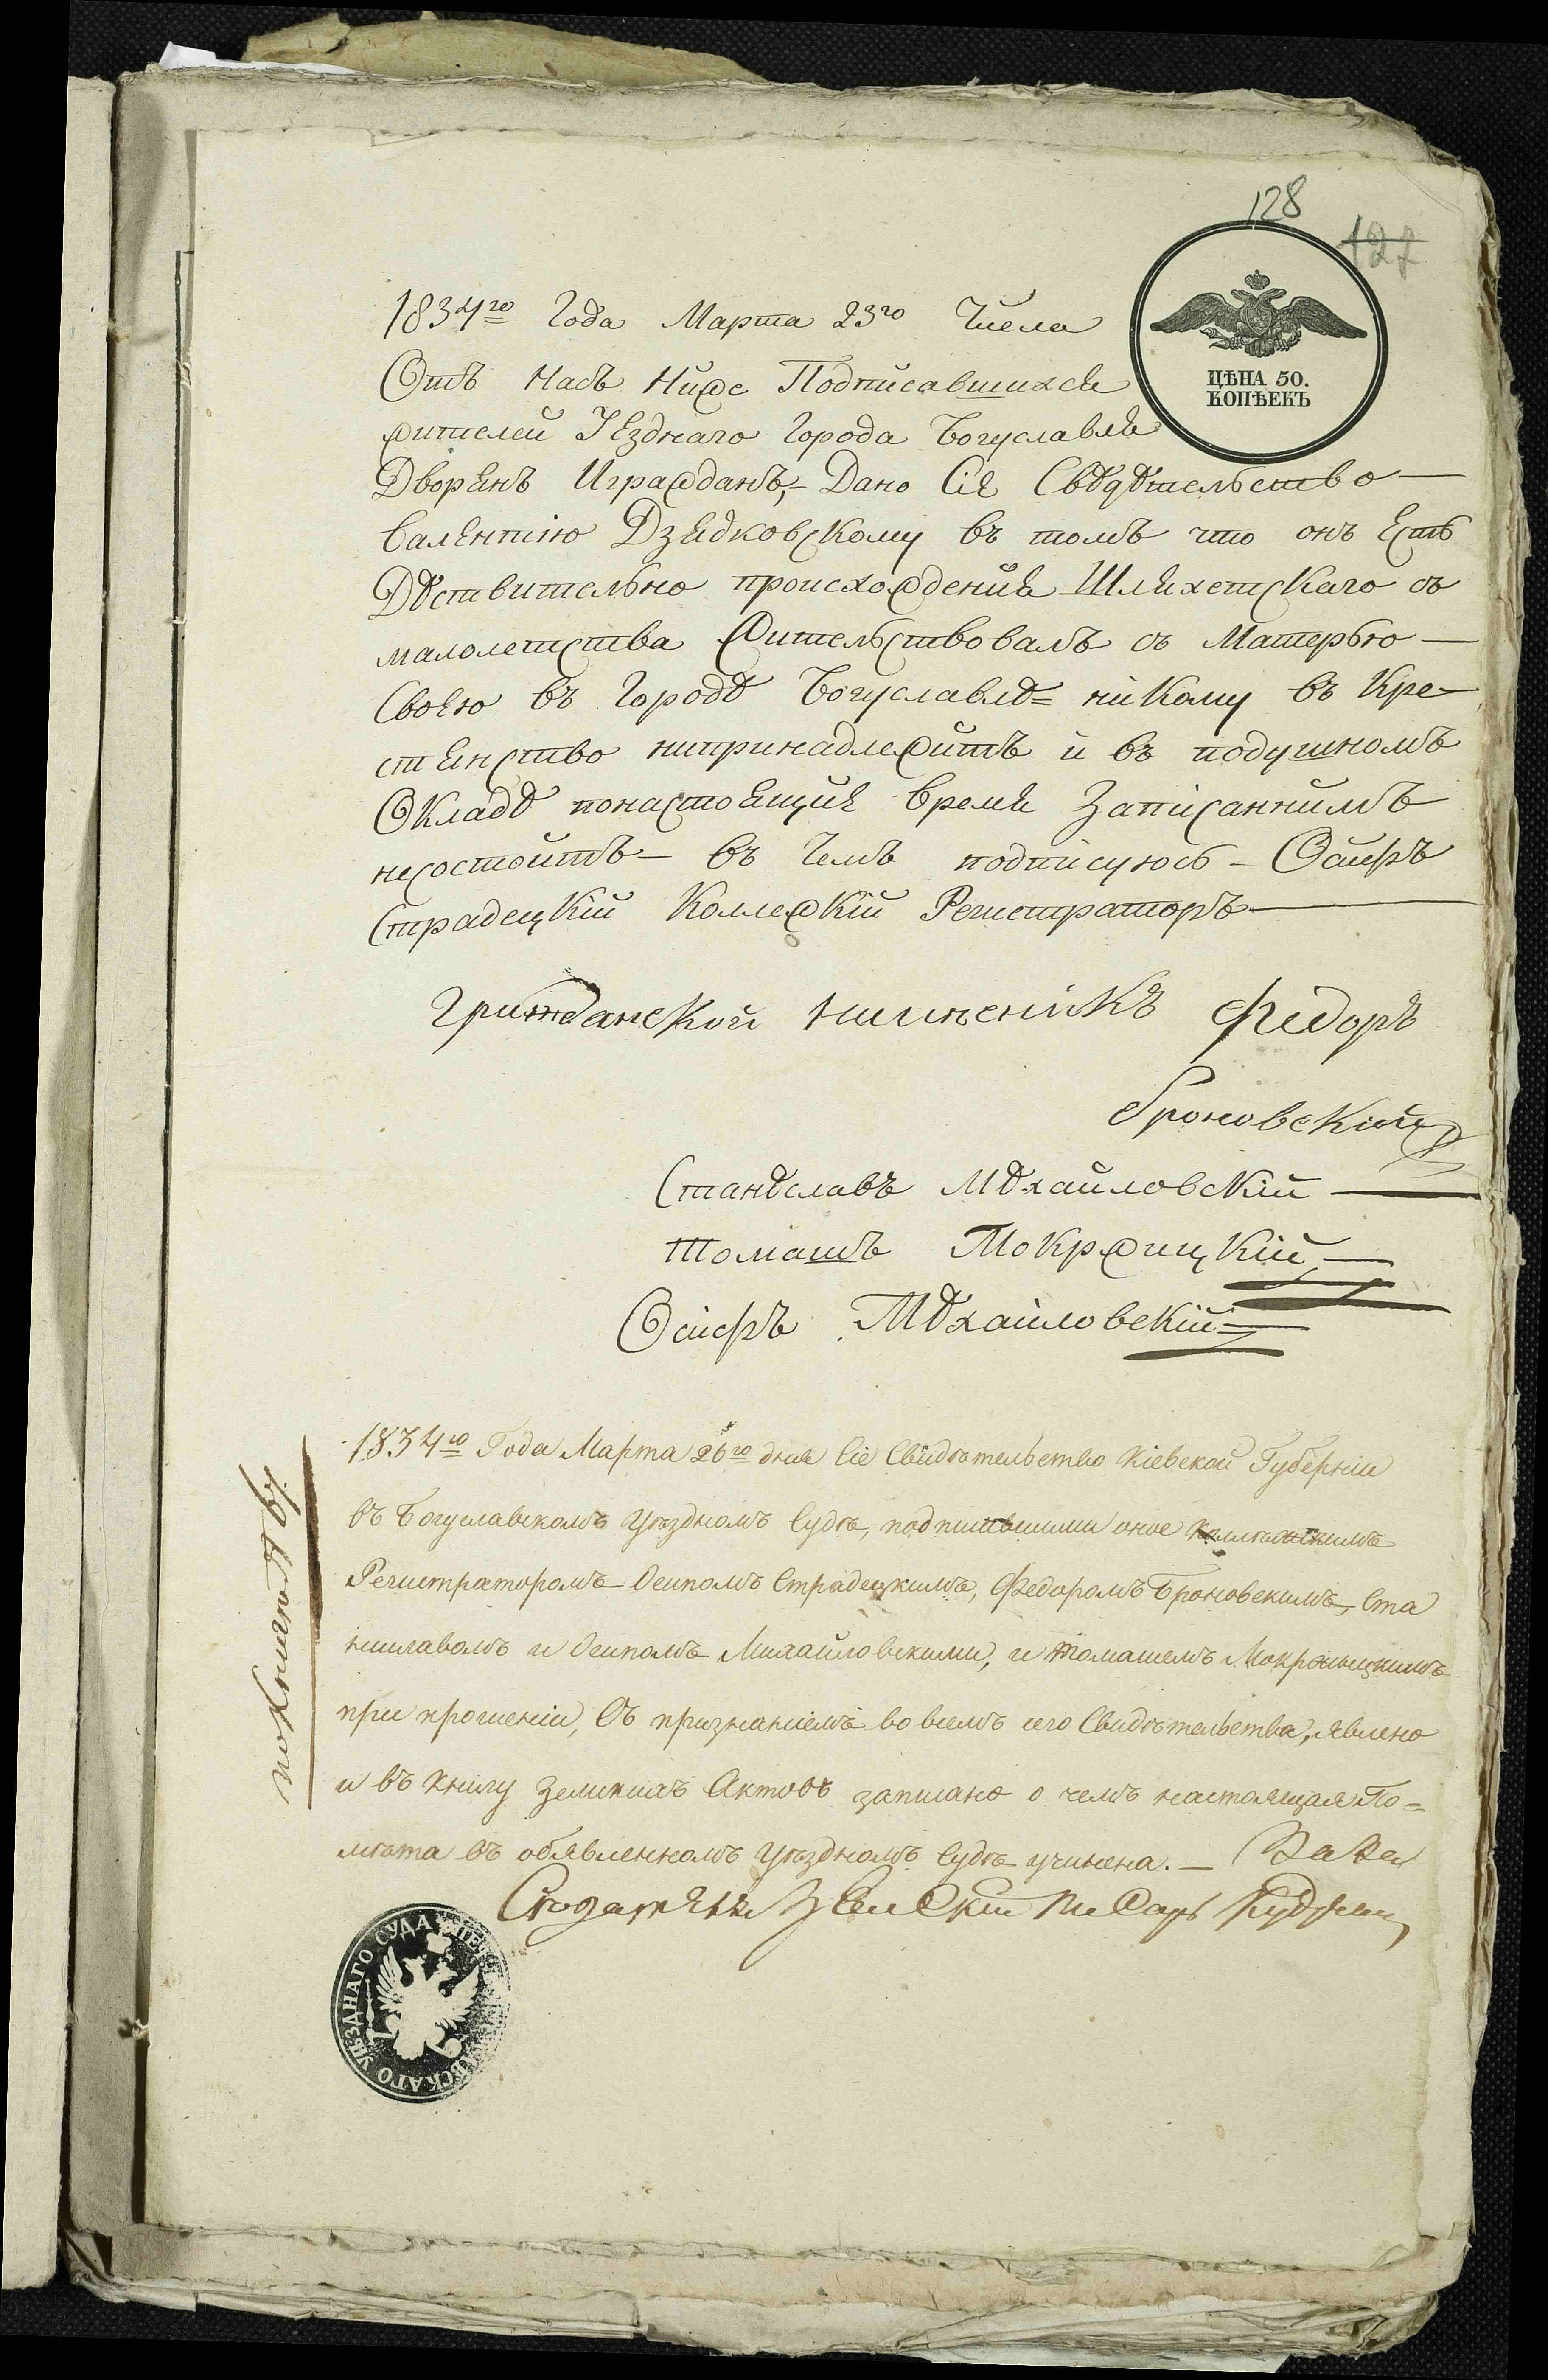 128
127
1834го Года Марта 23го Числа
ЦѢНА 50.
КОПѢЕКЪ
Отъ насъ ниже Подписавшихся
жителей УЕзднаго Города Богуславля
Дворянъ Игражданъ, Дано Сіе Свѣдѣтельство
валентію Дзядковскому въ томъ что онъ Есть
Дѣствительно происхожденія Шляхетскаго съ
малолетства жительствовалъ съ Матерью
Своею въ Городѣ Богуславлѣ= никому въ Кре-
стянство нипринадлежитъ и въ подушномъ
Окладѣ понастоящия время Записаннимъ
несостоитъ – въ Чемъ подписуюсь – Осипъ
Страдецкій Колежкій Регистраторъ
Гражданской Федоръ
Броновскій
Станѣславъ Мѣхайловскій
Томашъ Мокржицкій
Осипъ Мѣхаиловскій
1834го Года Марта 26го дня Сіе Свидѣтельство Кіевской Губерніи
въ Богуславскомъ Уѣздномъ Судѣ, подписавшими оное Колежскимъ
Регистраторомъ Осипомъ Страдецкимъ, Федоромъ Броновскимъ, Ста
ниславомъ и Осипомъ Михайловскими, и Томашемъ Мокржыцкимъ
при прошеніи, Съ признаніемъ во всемъ сего Свидѣтельства, явлено
и въ книгу Земскихъ Актовъ записано о чемъ настоящая По=
мѣта въ обявленномъ Уѣздномъ Судѣ учинена. –
Земскій Писарь
покниге № 67.
УѢЗДНАГО СУДА